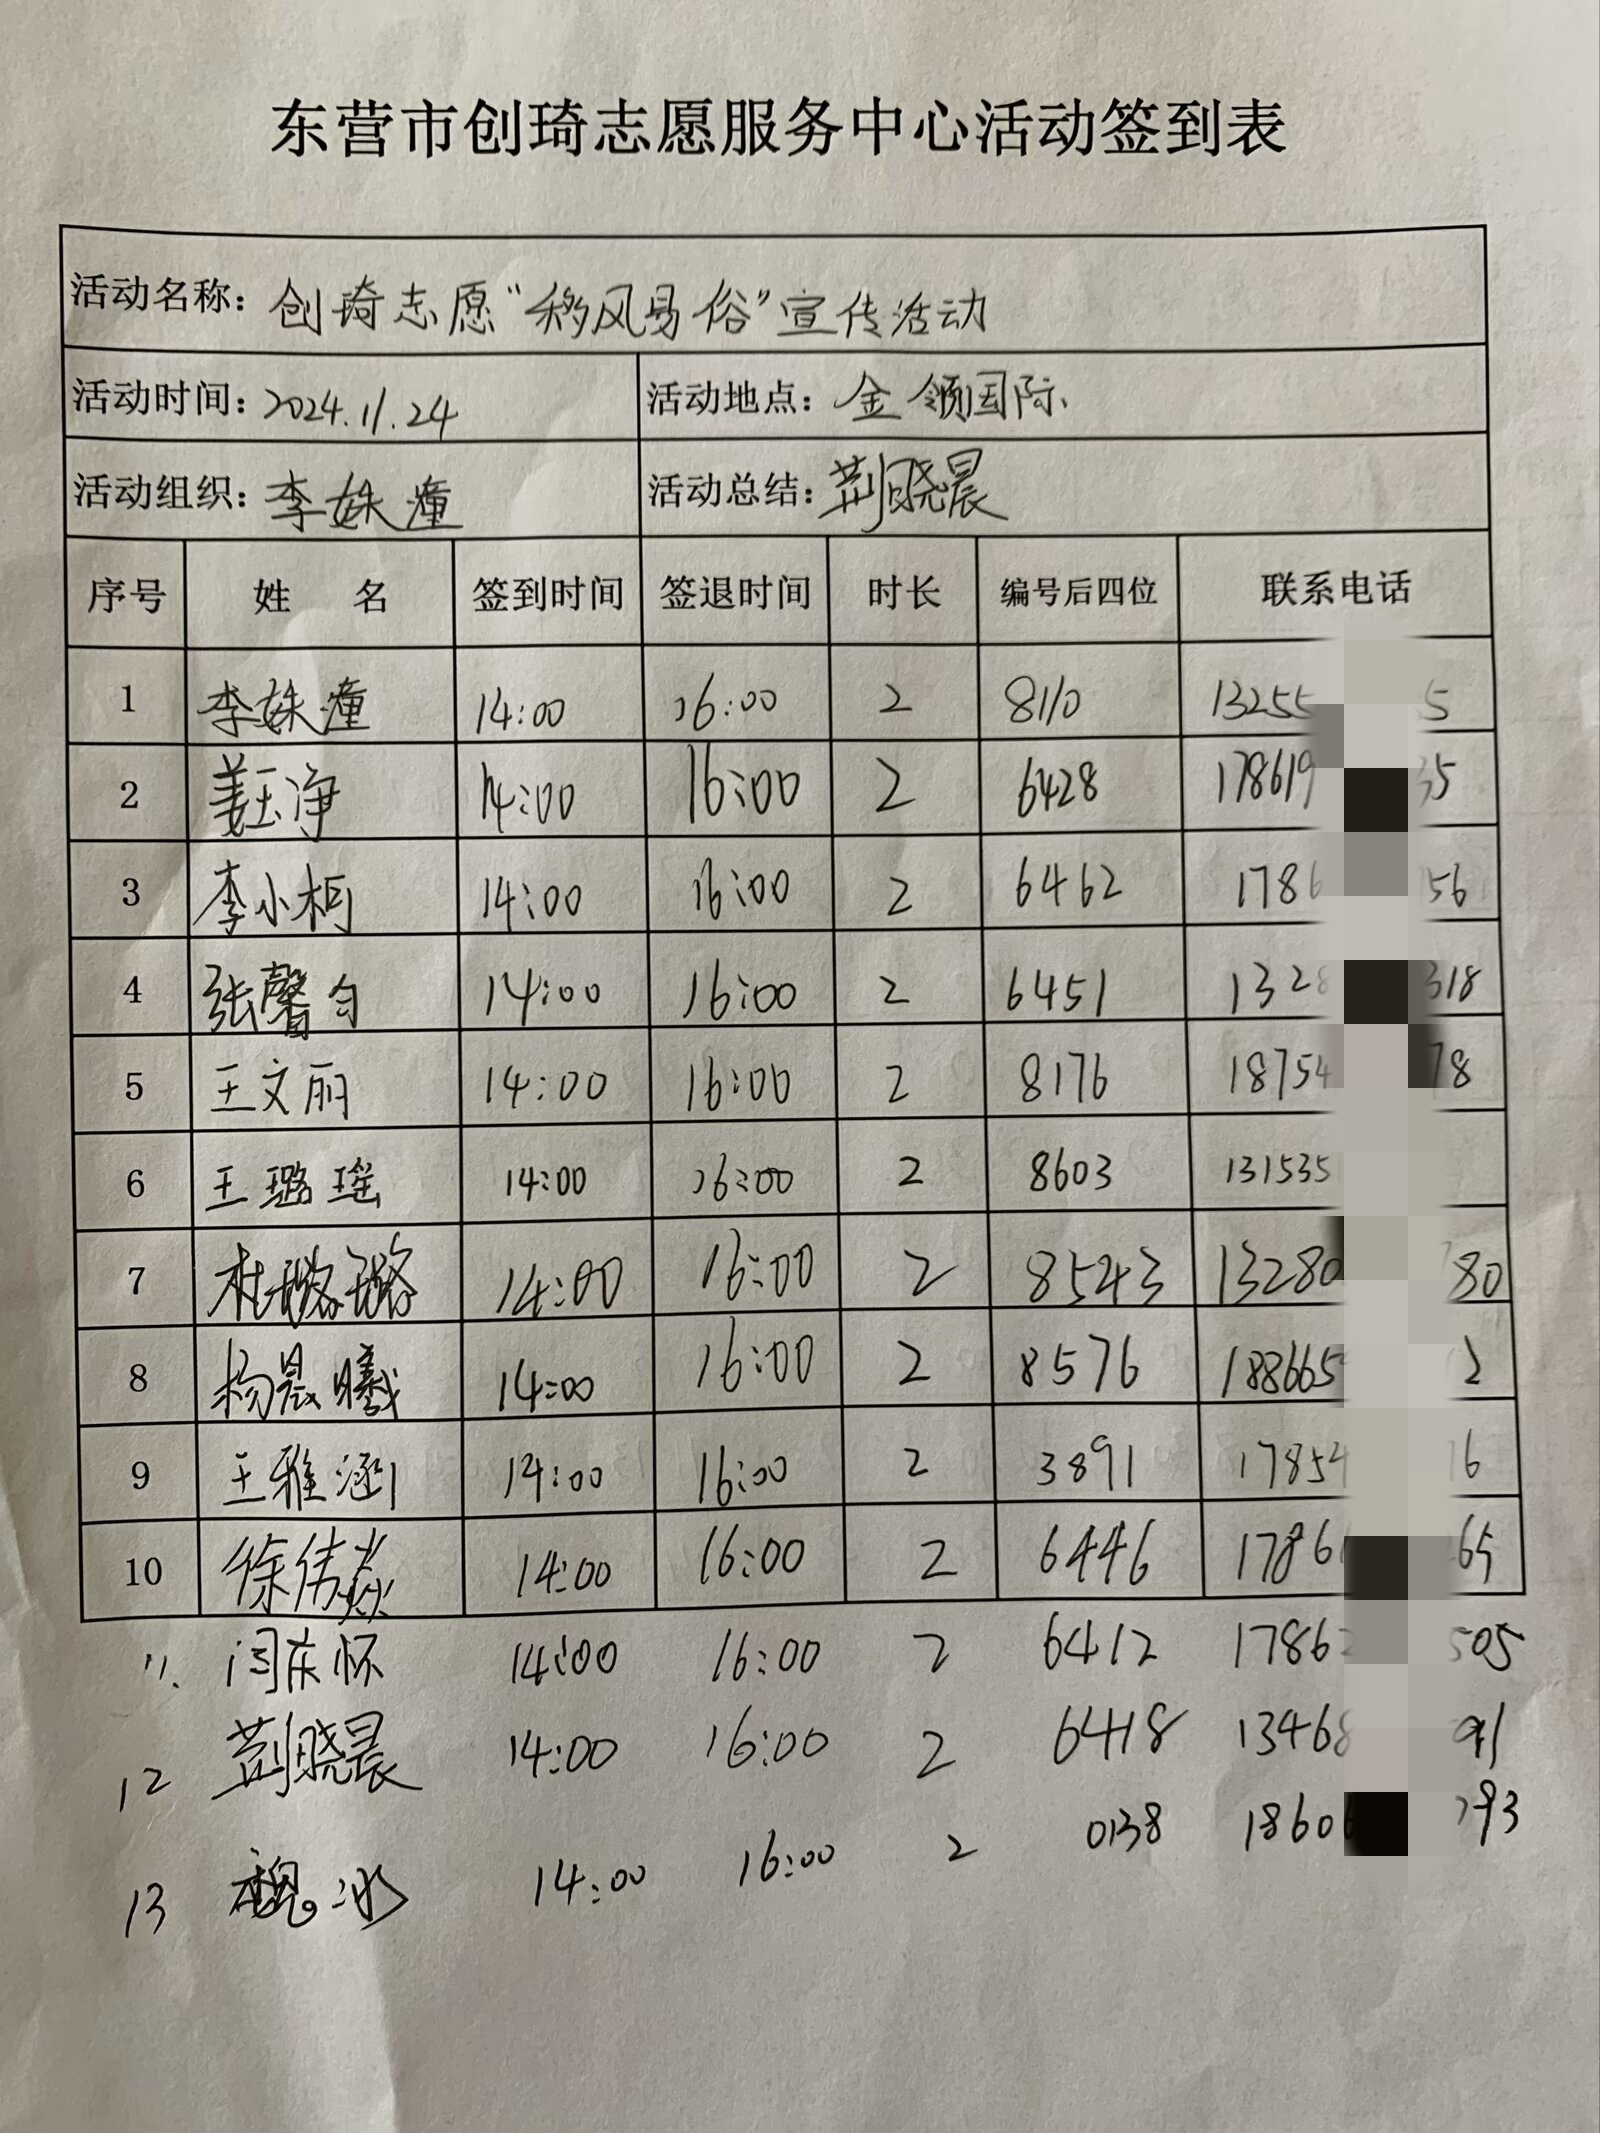 东营市创琦志愿服务中心活动签到表
活动名称：创琦志愿“移风易俗”宣传活动
活动时间：2024.11.24 活动地点：金领国际
活动组织：李姝潼 活动总结：荆晓晨
序号 姓 名 签到时间 签退时间 时长 编号后四位 联系电话
1 李姝潼 14:00 16:00 2 8110 13255 5
2 姜玉净 14:00 16:00 2 6428 178619 35
3 李小柯 14:00 16:00 2 6462 1786 56
4 张馨匀 14:00 16:00 2 6451 1328 318
5 王文丽 14:00 16:00 2 8176 18754 78
6 王璐瑶 14:00 16:00 2 8603 131535
7 杜璐璐 14:00 16:00 2 8543 13280 80
8 杨晨曦 14:00 16:00 2 8576 188665 2
9 王雅涵 14:00 16:00 2 3891 17854 16
10 徐伟焱 14:00 16:00 2 6446 1786 65
11. 闫庆怀 14:00 16:00 2 6412 1786 505
12 荆晓晨 14:00 16:00 2 6418 13468 91
13 魏冰 14:00 16:00 2 0138 1860 793